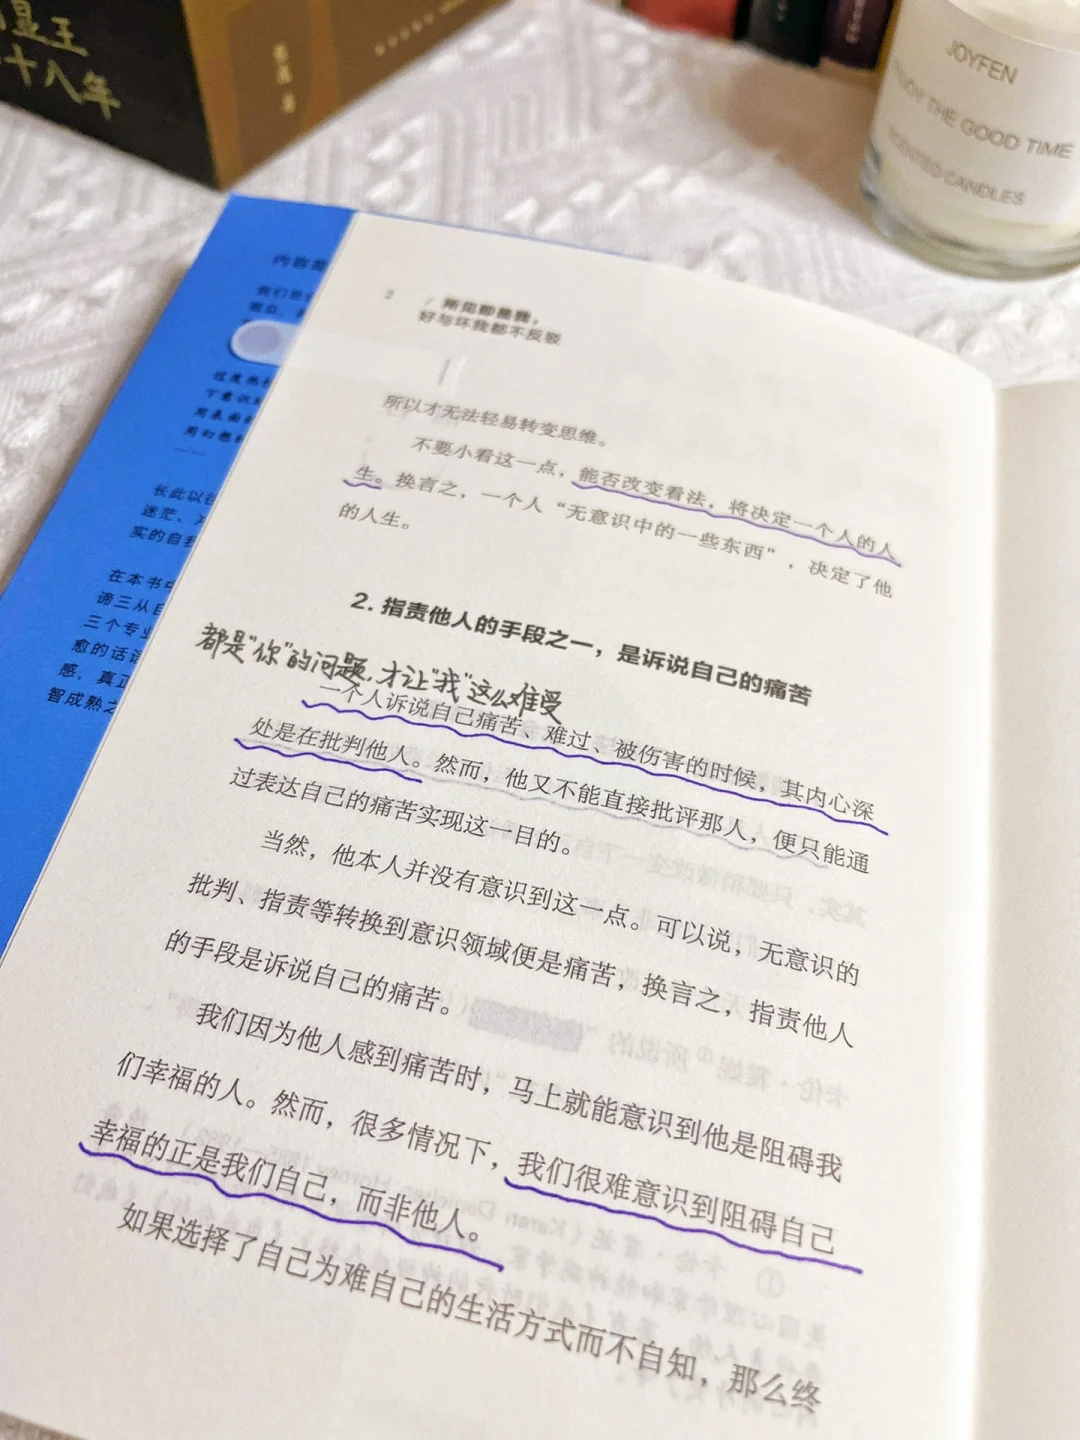 显王
十八年
JOYFEN
ENJOY THE GOOD TIME
SCENTED CANDLES
内容简
我们总
过度热
下意识
用表面
用幻想
……
长此以往
迷茫、
实的自我
在本书中
谛三从自
三个专业
愈的话语
感，真正
智成熟之
2 / 所见即是我，
好与坏我都不反驳
所以才无法轻易转变思维。
不要小看这一点，能否改变看法，将决定一个人的人
生。换言之，一个人“无意识中的一些东西”，决定了他
的人生。
2. 指责他人的手段之一，是诉说自己的痛苦
都是“你”的问题，才让“我”这么难受
一个人诉说自己痛苦、难过、被伤害的时候，其内心深
处是在批判他人。然而，他又不能直接批评那人，便只能通
过表达自己的痛苦实现这一目的。
当然，他本人并没有意识到这一点。可以说，无意识的
批判、指责等转换到意识领域便是痛苦，换言之，指责他人
的手段是诉说自己的痛苦。
我们因为他人感到痛苦时，马上就能意识到他是阻碍我
们幸福的人。然而，很多情况下，我们很难意识到阻碍自己
幸福的正是我们自己，而非他人。
如果选择了自己为难自己的生活方式而不自知，那么终